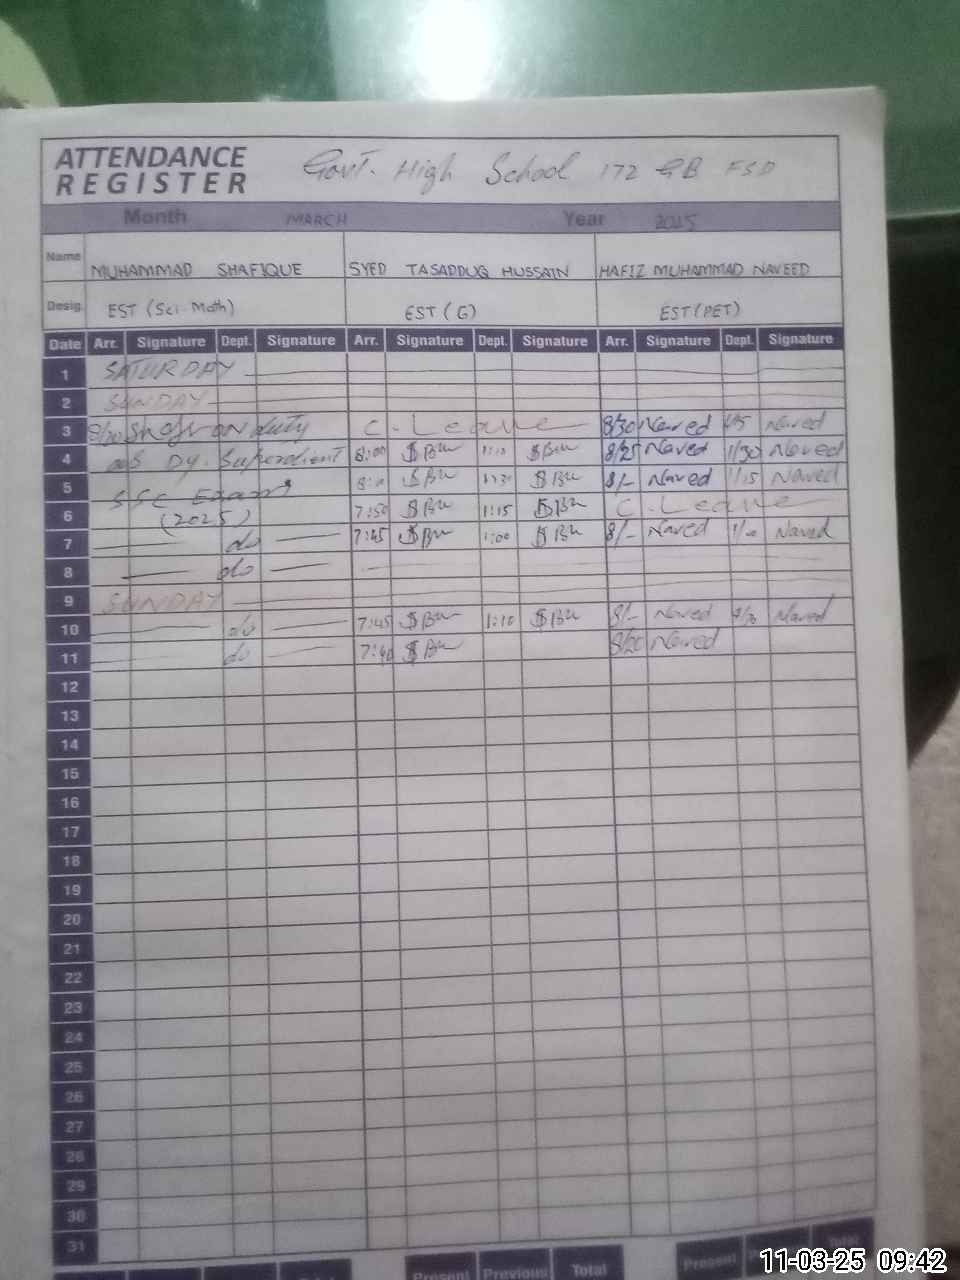 ATTENDANCE REGISTER Govt. High School 172 GB FSD
Month MARCH Year 2025
Name MUHAMMAD SHAFIQUE SYED TASADDUQ HUSSAIN HAFIZ MUHAMMAD NAVEED
Desig. EST (Sci-Math) EST (G) EST (PET)
Date Arr. Signature Dept. Signature Arr. Signature Dept. Signature Arr. Signature Dept. Signature
1 SATURDAY
2 SUNDAY
3 on duty C. Leave 8/30 Naved Naved
4 as Dy. 8:00 1:10 8/25 Naved 1/30 Naved
5 SSC 8/- Naved 1/15 Naved
6 (2025) 7:50 1:15 C. Leave
7 do 7:45 1:00 8/- Naved Naved
8 do
9 SUNDAY
10 do 7:45 1:10 8/- Naved Naved
11 do 7:40 8/20 Naved
12
13
14
15
16
17
18
19
20
21
22
23
24
25
26
27
28
29
30
31
Present Previous Total Present Total
11-03-25 09:42